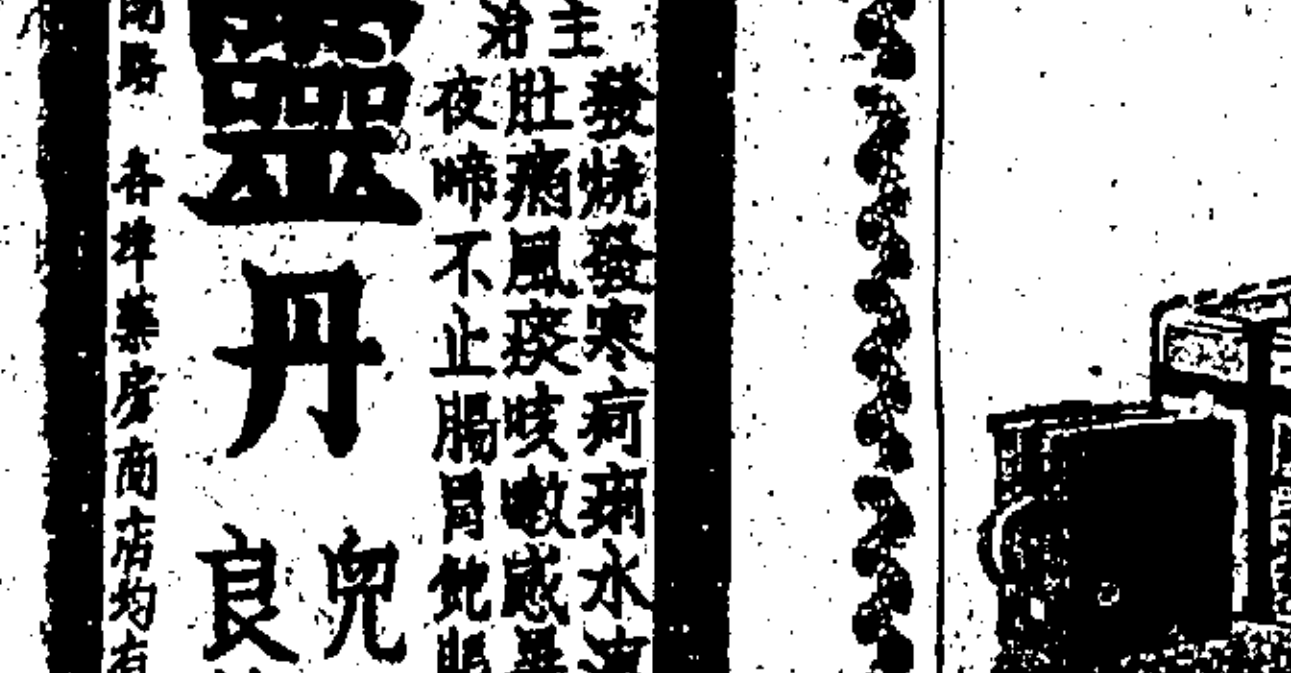 主治
發燒發寒疴痢水
肚痛風痰咳嗽感
夜啼不止腸胃
靈丹
兒
良
各埠藥房商店均有